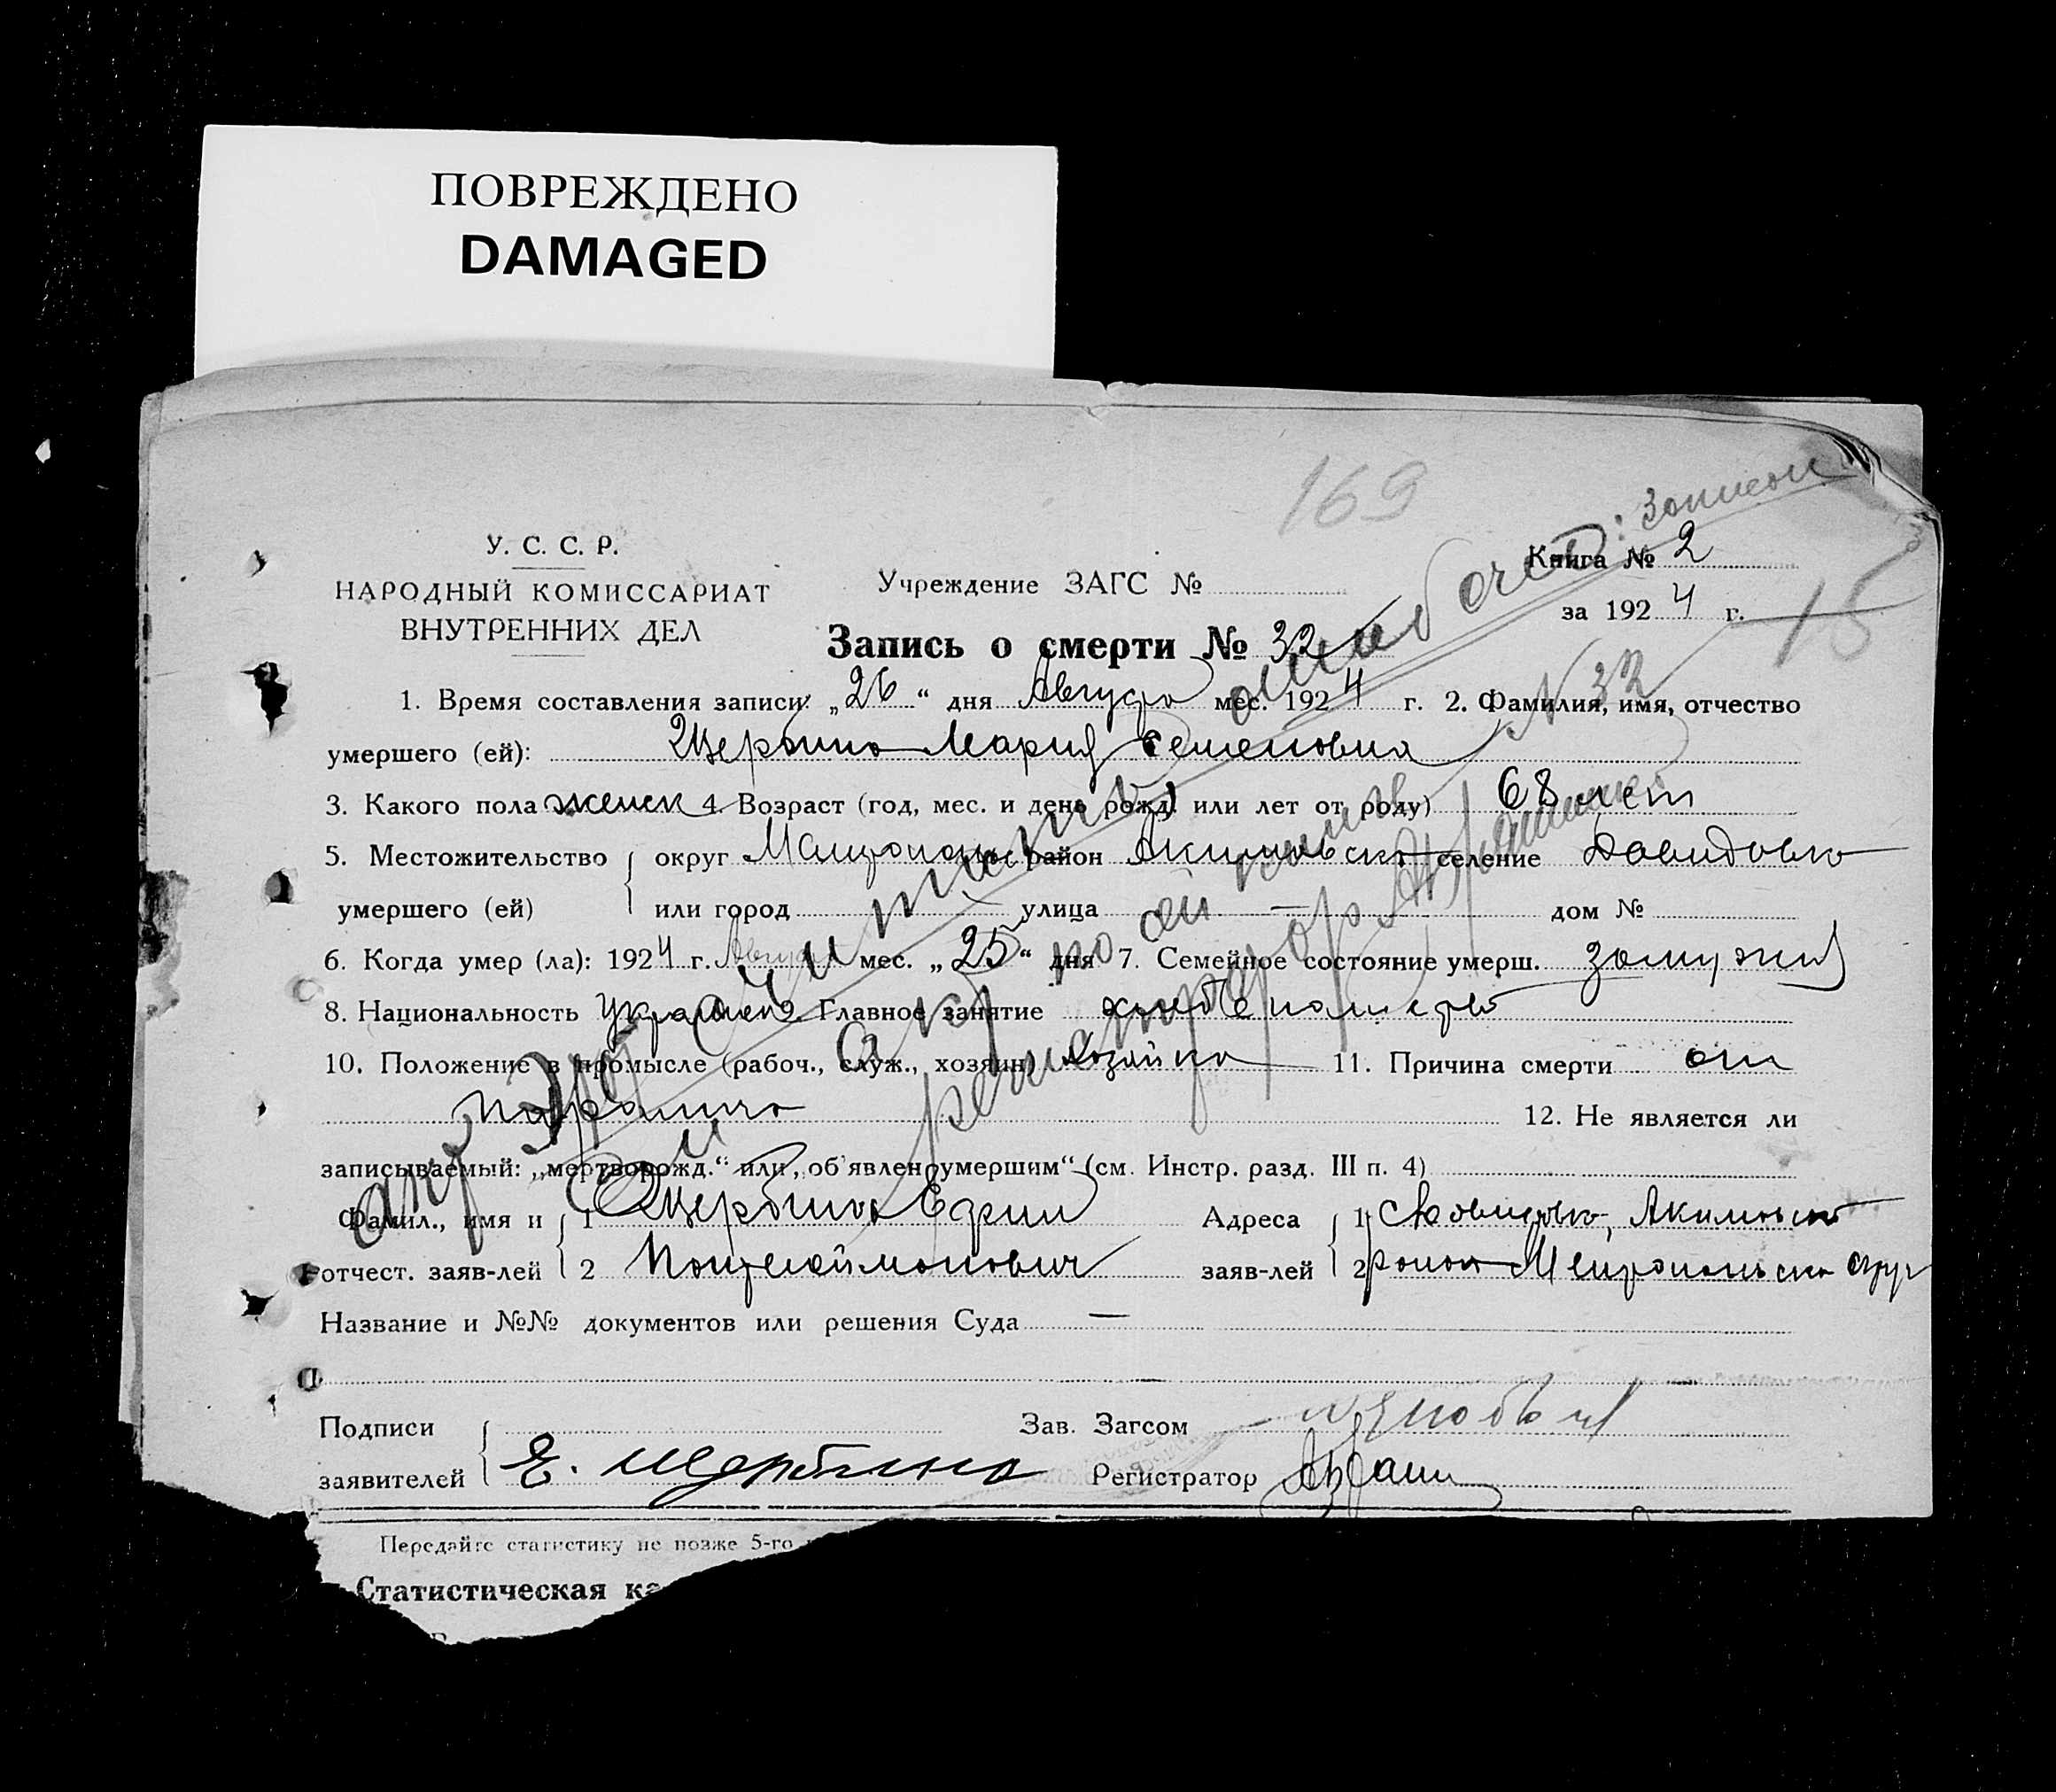 ПОВРЕЖДЕНО
DAMAGED
169
У. С. С. Р.
НАРОДНЫЙ КОМИССАРИАТ
ВНУТРЕННИХ ДЕЛ
Учреждение ЗАГС №
Книга № 2
за 1924 г.
15
Запись о смерти № 32
№ 32
1. Время составления записи: „26“ дня Августа мес. 1924 г. 2. Фамилия, имя, отчество
умершего (ей): Щербина Мария Семеновна
3. Какого пола женск 4. Возраст (год, мес. и день рожд. или лет от роду) 68 лет
5. Местожительство округ район Акимовск селение Давидовка
умершего (ей) или город улица — дом №
6. Когда умер (ла): 1924 г. Августа мес. „25“ дня 7. Семейное состояние умерш. замужня
8. Национальность украинк 9. Главное занятие хлебопашество
10. Положение в промысле (рабоч., служ., хозяин) хозяйка 11. Причина смерти от
паралича 12. Не является ли
записываемый: „мертворожд.“ или „об'явлен умершим“ (см. Инстр. разд. III п. 4)
Фамил., имя и 1 Щербина Ефим Адреса 1 Давидовка, Акимовск
отчест. заяв-лей 2 Пантелеймонович заяв-лей 2 район Мелитопольск округ
Название и №№ документов или решения Суда —
Подписи Зав. Загсом
заявителей Е. Щербина Регистратор
Передайте статистику не позже 5-го
Статистическая ка
Этот акт считать ошибочст: записом